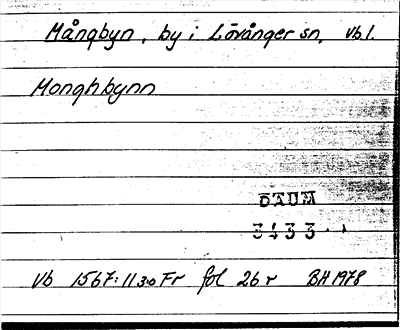 Mångbyn, by i Lövånger sn, Vbl.
Monghbynn
DAUM
3433
Vb 1567:11 30 Fr fol 26 r BH 1978